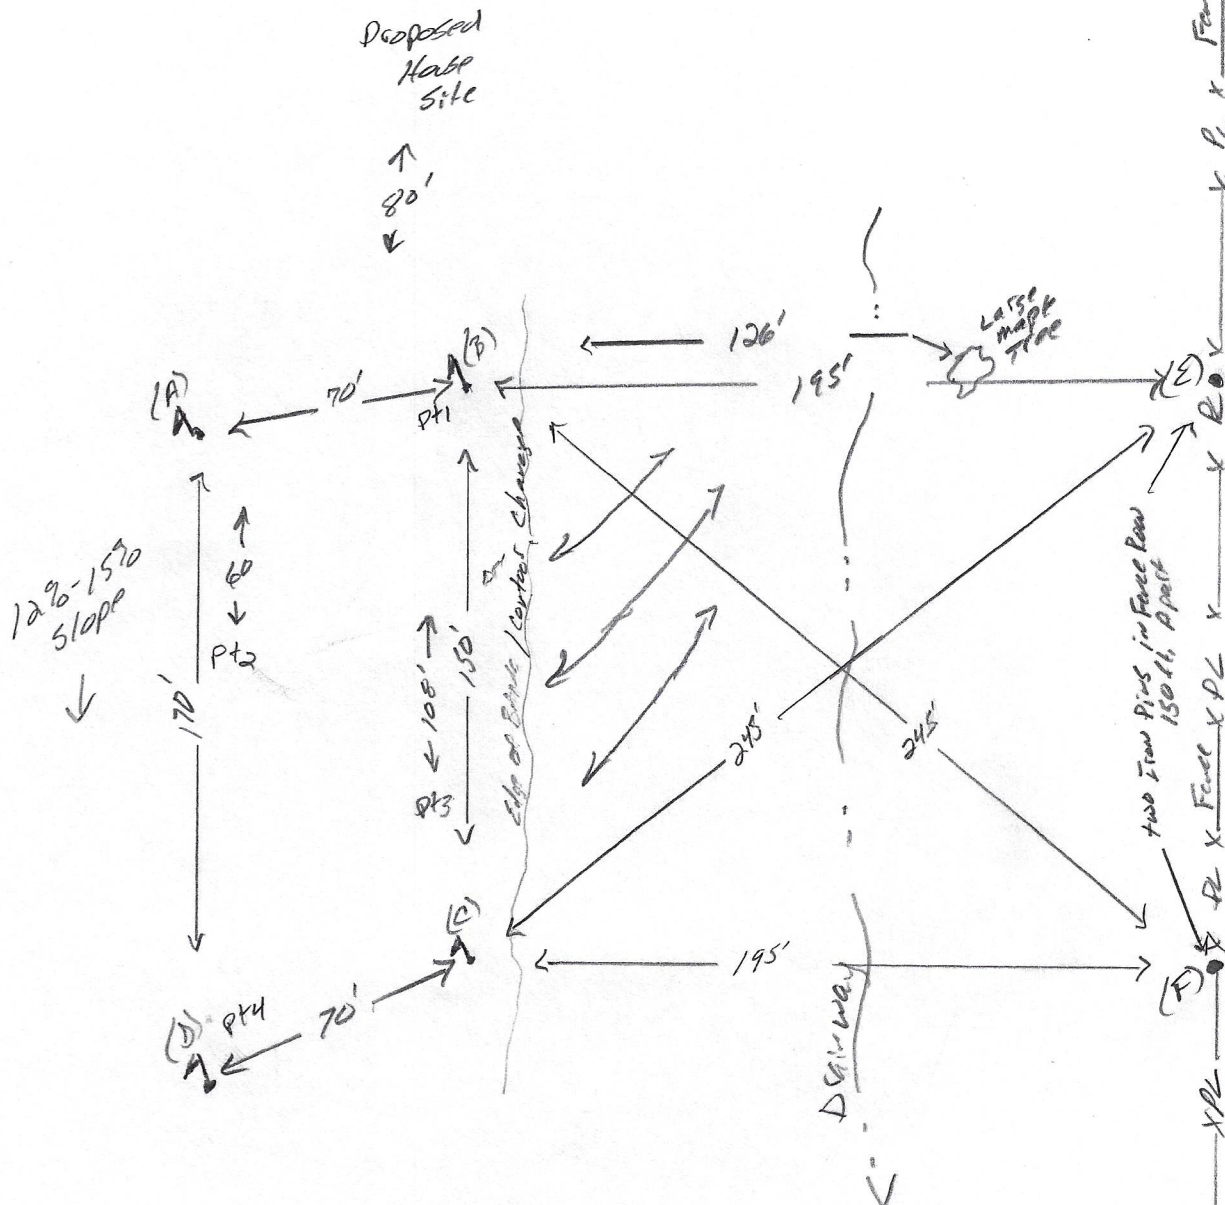 Proposed
House
Site
80'
126'
Large
maple
Tree
(A)
70'
(B)
Pt1
195'
(E)
12%-15%
Slope
60
Pt2
170'
108'
150'
Pt3
Edge of Bank / Contour Changes
245'
245'
two Iron Pins in Fence Row
150 ft. Apart
(C)
195'
(F)
(D)
Pt4
70'
Drainway
X PL X Fence X PL X
XPL